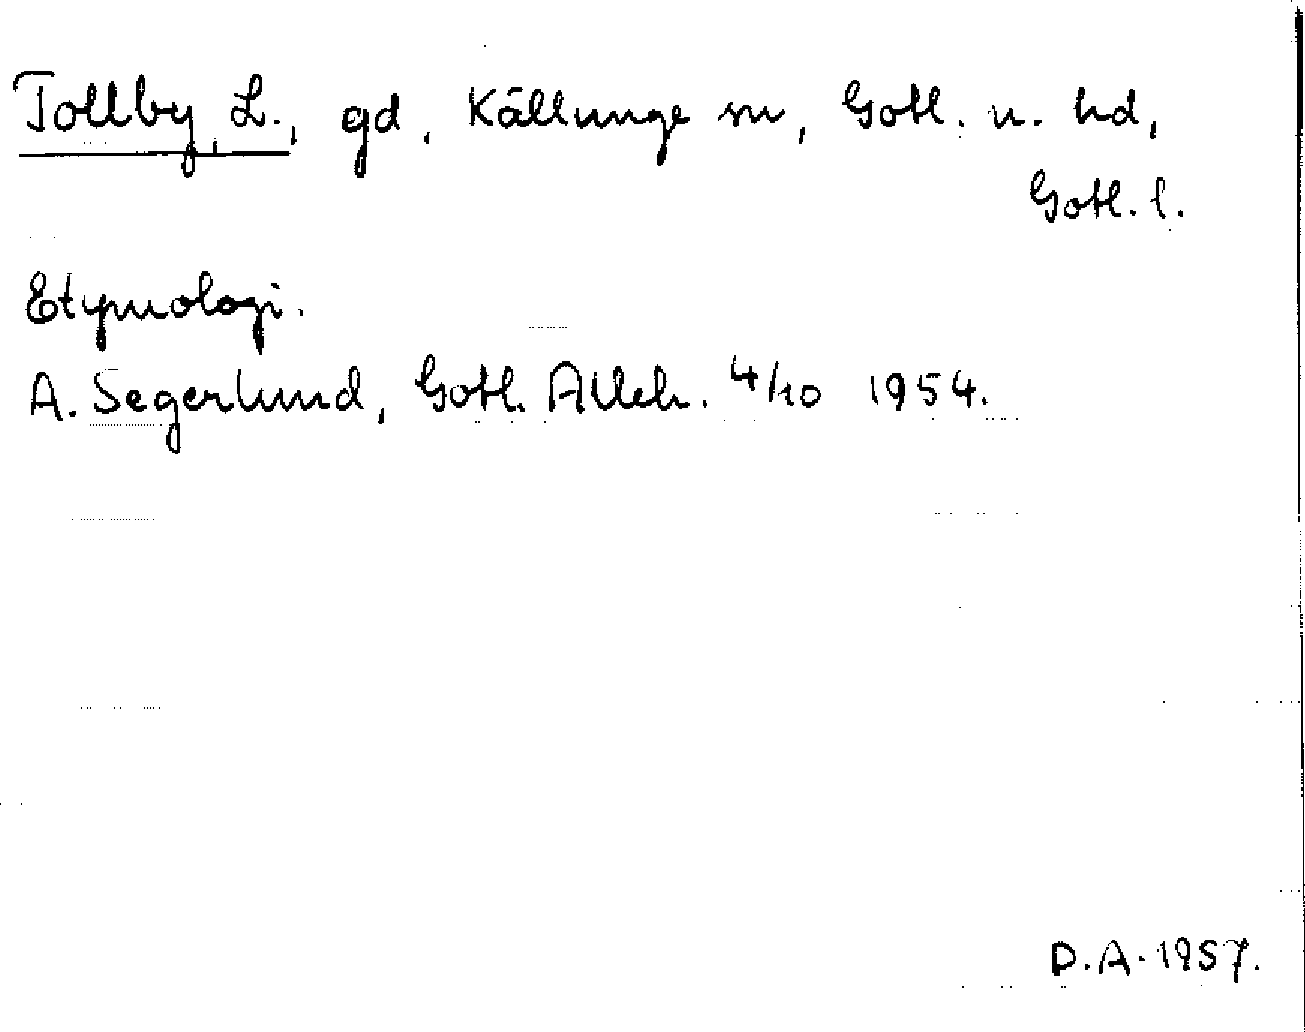 Tollby, L., gd, Källunge sn, Gotl. n. hd,
Gotl. l.
Etymologi.
A. Segerlund, Gotl. Alleh. 4/10 1954.
D.A. 1957.